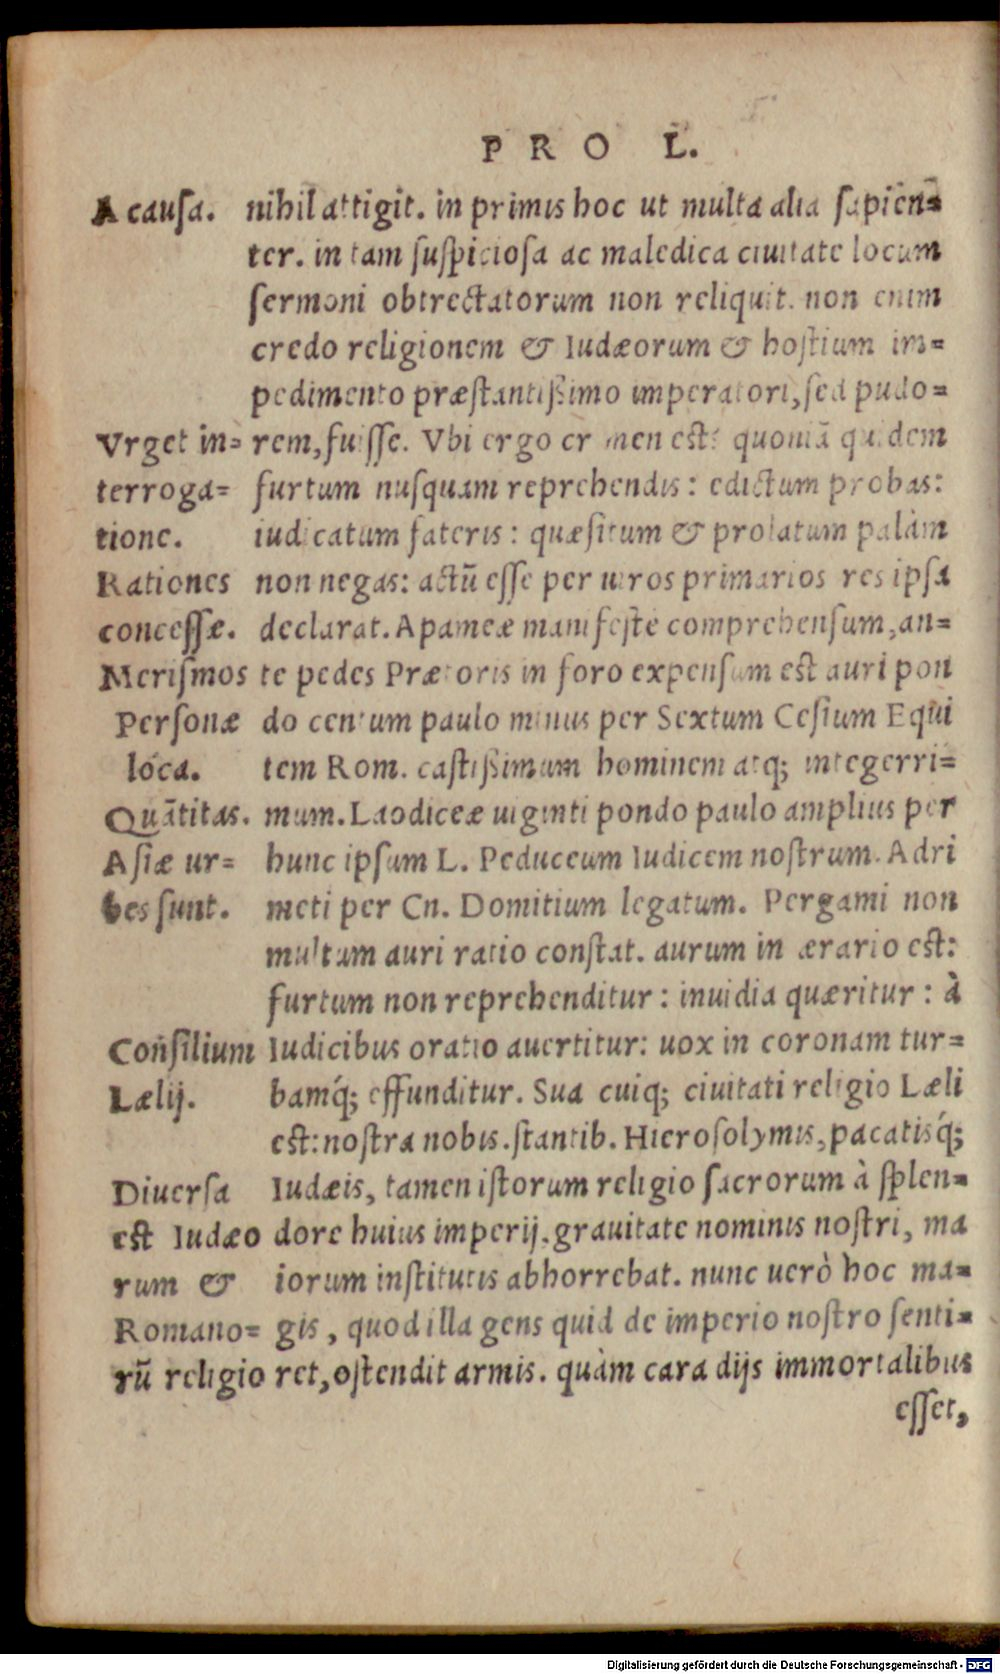 PRO L.
A causa.
nihil attigit. in primis hoc ut multa alia sapien-
ter. in tam suspiciosa ac maledica ciuitate locum
sermoni obtrectatorum non reliquit. non enim
credo religionem & Iudæorum & hostium im-
pedimento præstantißimo imperatori, sed pudo-
Vrget in-
terroga-
tione.
Rationes
concessæ.
Merismos
Personæ
loca.
Quātitas.
Asiæ ur-
bes sunt.
rem, fuisse. Vbi ergo crimen est? quoniā quidem
furtum nusquam reprehendis: edictum probas:
iudicatum fateris: quæsitum & prolatum palàm
non negas: actū esse per uiros primarios res ipsa
declarat. Apameæ manifeste comprehensum, an-
te pedes Prætoris in foro expensum est auri pon
do centum paulo minus per Sextum Cesium Equi
tem Rom. castißimum hominem atq; integerri-
mum. Laodiceæ uiginti pondo paulo amplius per
hunc ipsum L. Peduceum Iudicem nostrum. Adri
meti per Cn. Domitium legatum. Pergami non
multum auri ratio constat. aurum in ærario est:
furtum non reprehenditur: inuidia quæritur: à
Consilium
Lælij.
Iudicibus oratio auertitur: uox in coronam tur-
bamq́; effunditur. Sua cuiq; ciuitati religio Læli
est: nostra nobis. stantib. Hierosolymis, pacatisq́;
Diuersa
est Iudæo
rum &
Romano-
rū religio
Iudæis, tamen istorum religio sacrorum à splen-
dore huius imperij. grauitate nominis nostri, ma
iorum institutis abhorrebat. nunc uerò hoc ma-
gis, quod illa gens quid de imperio nostro senti-
ret, ostendit armis. quàm cara dijs immortalibus
esset,
Digitalisierung gefördert durch die Deutsche Forschungsgemeinschaft - DFG